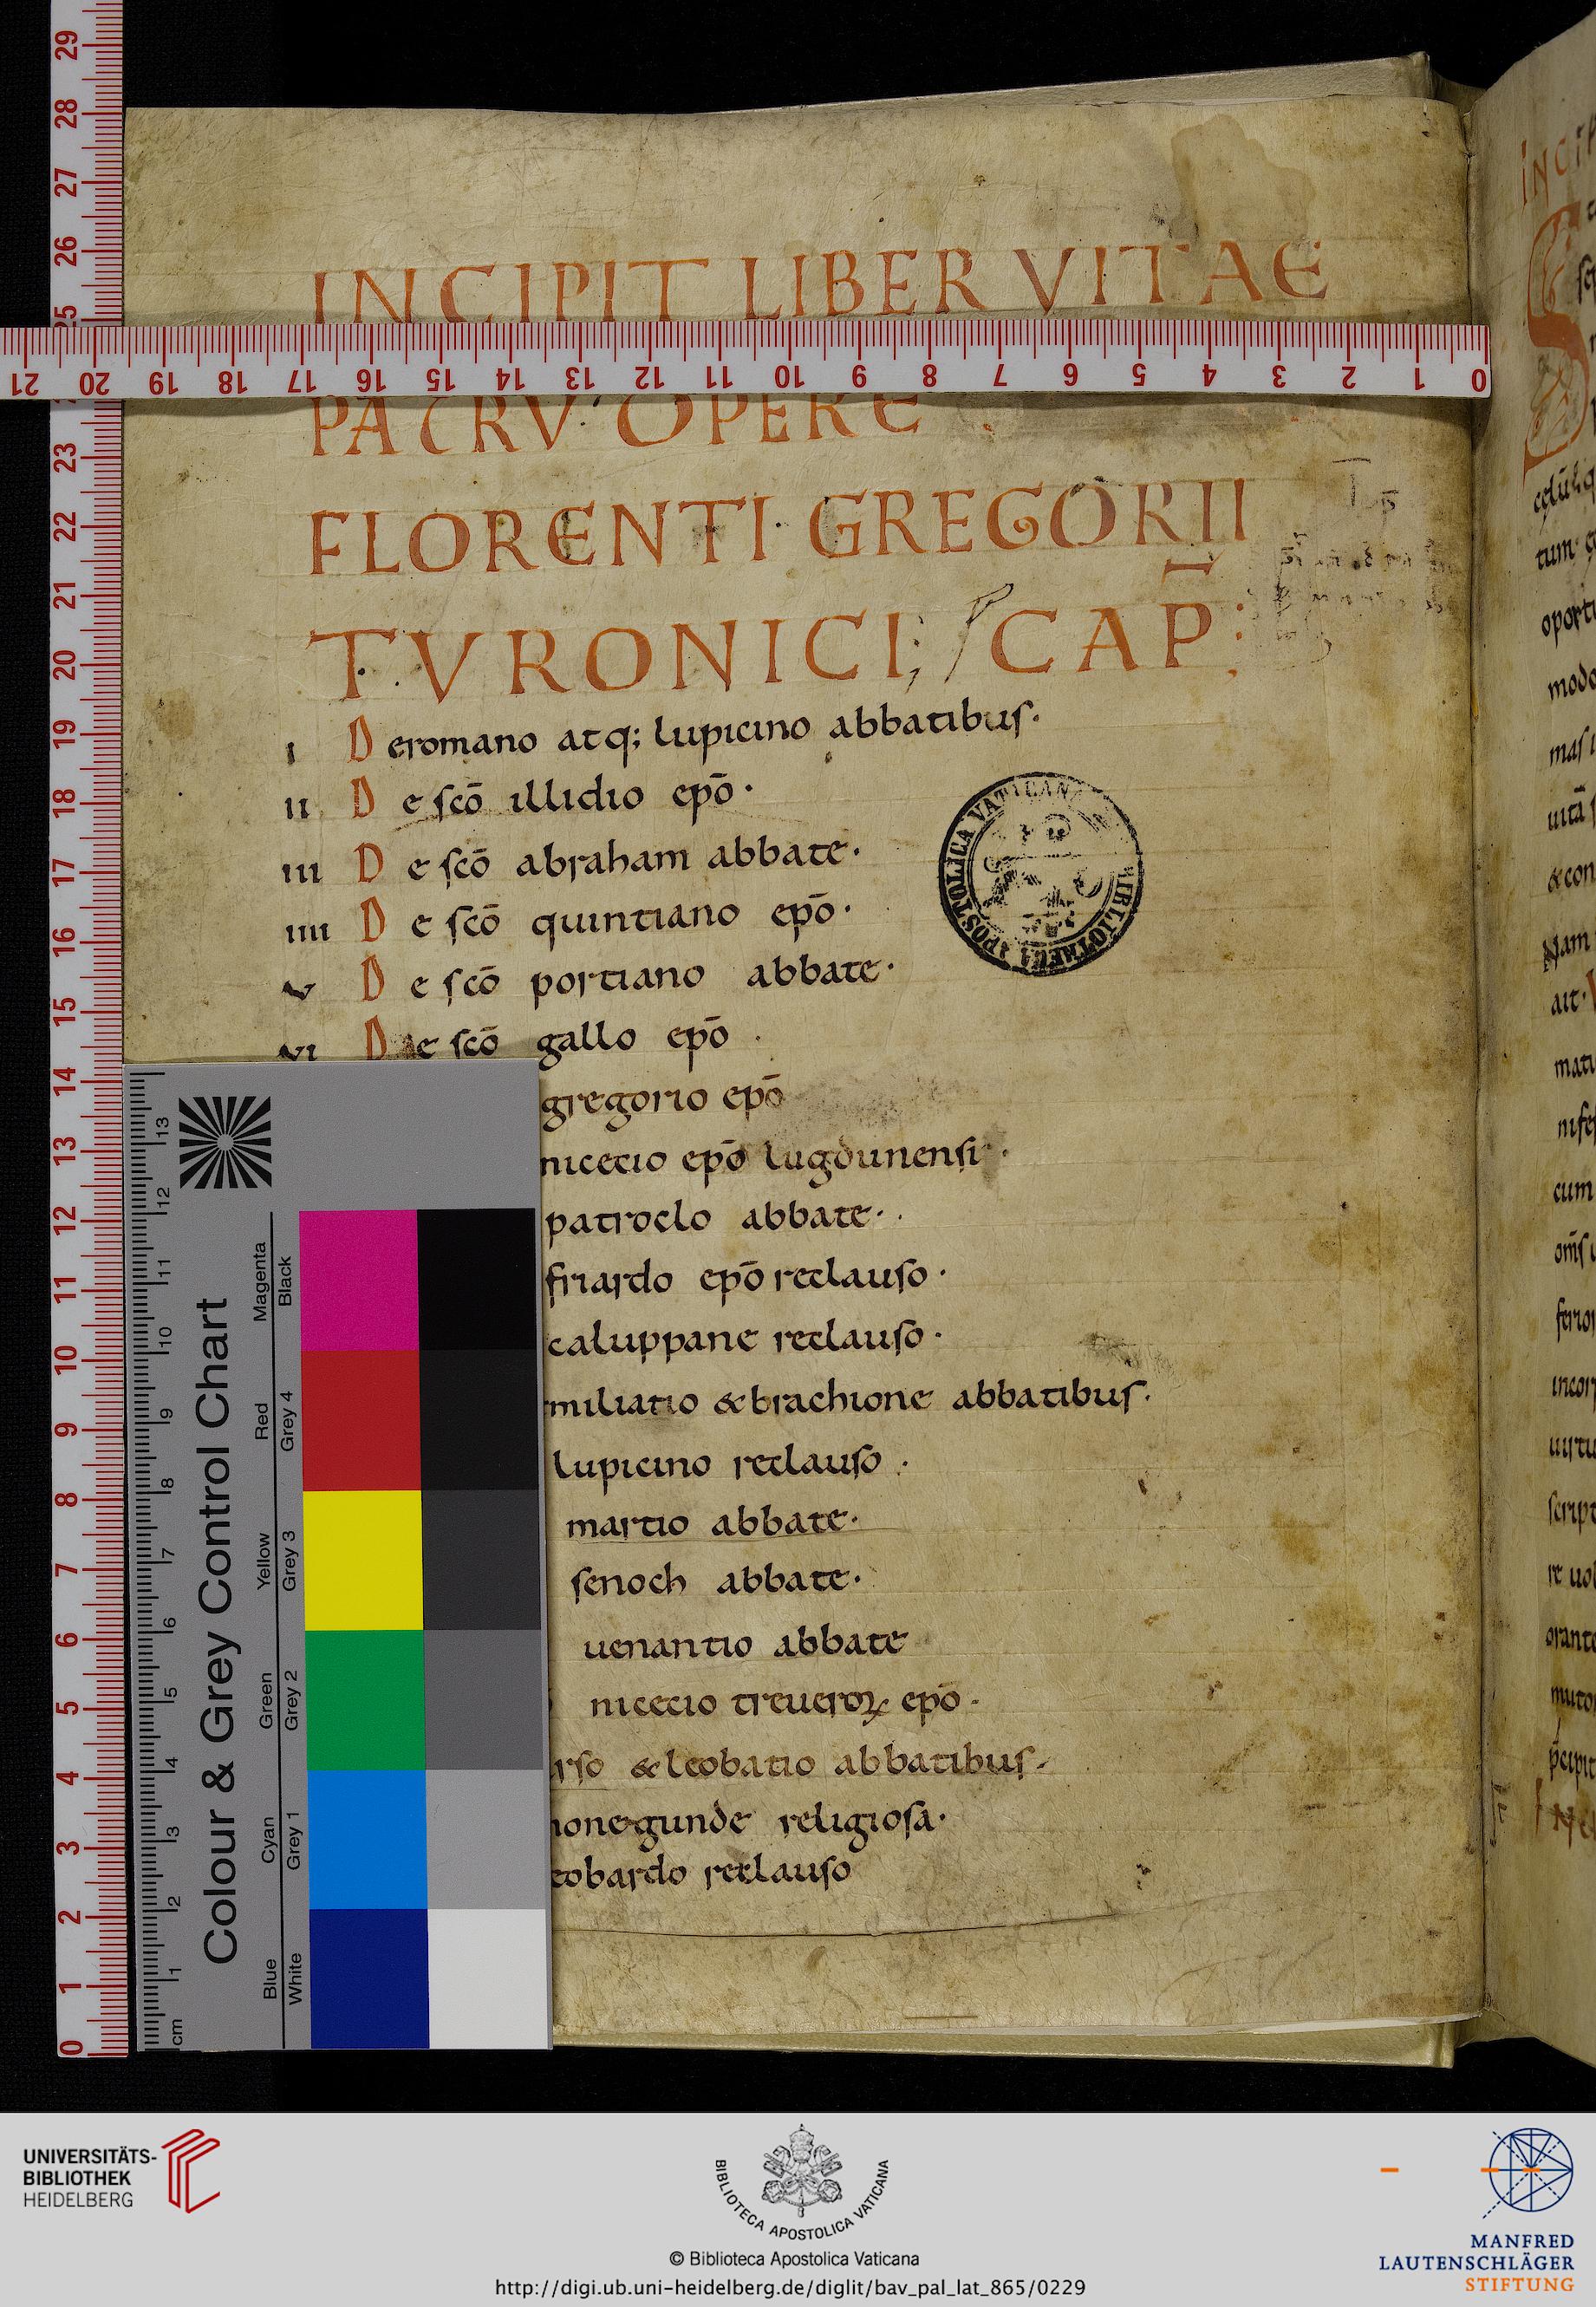 INCIPIT LIBER VITAE
PATRV· OPERE
FLORENTI· GREGORII
TVRONICI; CAP̅:
I Deromano atq; lupicino abbatibus·
II De scō illidio epō·
III De scō abraham abbate·
IIII De scō quintiano epō·
V De scō portiano abbate·
VI De scō gallo epō·
gregorio epō
nicecio epō lugdunensi·
patroclo abbate·
friardo epō reclauso·
caluppane reclauso·
miliatio & brachione abbatibus·
lupicino reclauso·
martio abbate·
senoch abbate·
uenantio abbate
nicecio treueroꝝ epō·
rso & leobatio abbatibus·
monegunde religiosa·
eobardo reclauso
APOSTOLICA VATICANA BIBLIOTHECA
29 28 27 26 25 23 22 21 20 19 18 17 16 15 14 13 12 11 10 9 8 7 6 5 4 3 2 1 0
21 20 19 18 17 16 15 14 13 12 11 10 9 8 7 6 5 4 3 2 1 0
Colour & Grey Control Chart
cm 1 2 3 4 5 6 7 8 9 10 11 12 13
Blue Cyan Green Yellow Red Magenta
White Grey 1 Grey 2 Grey 3 Grey 4 Black
INCIP
tum
oport
modo
&con
Nam
ait·
cum
script
re uol
UNIVERSITÄTS-
BIBLIOTHEK
HEIDELBERG
BIBLIOTECA APOSTOLICA VATICANA
© Biblioteca Apostolica Vaticana
http://digi.ub.uni-heidelberg.de/diglit/bav_pal_lat_865/0229
MANFRED
LAUTENSCHLÄGER
STIFTUNG